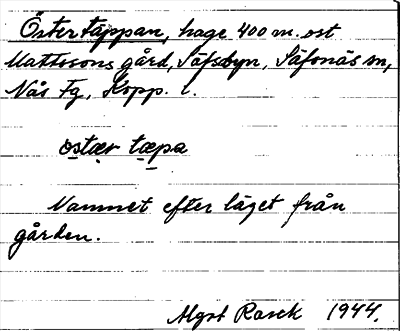 Östertäppan, hage 400 m. ost
Mattssons gård, Säfsbyn, Säfsnäs sn,
Nås Fg, Kopp. l.
ostær tæpa
Namnet efter läget från
gården.
Algot Rasck 1944.